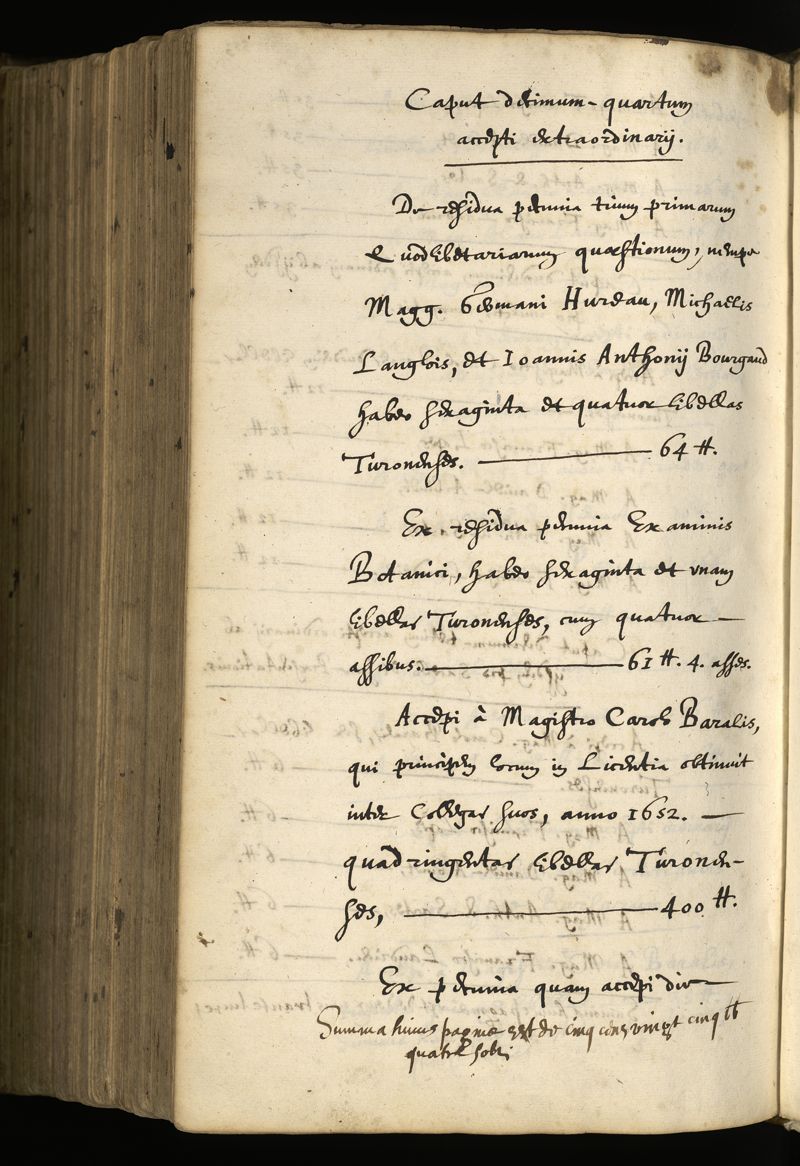 Caput decimum-quartum
accepti extraordinarij.
De residua pecunia trium primarum
Quodlibetariarum quaestionum, nempe
Magg. Germani Hureau, Michaelis
Langlois, et Ioannis Anthonij Bourgaud
habeo sexaginta et quatuor libellas
Turonenses. — 64 tt.
Ex residua pecunia Examinis
Botanici, habeo sexaginta et unam
libellas Turonenses, cum quatuor —
assibus. — 61 tt. 4. asses.
Accepi à Magistro Carolo Baralis,
qui principem locum in Licentia obtinuit
inter Collegas suos, anno 1652. —
quadringentas libellas Turonen-
ses, — 400 tt.
Ex pecunia quam accepi die —
Summa huius paginae est de cinq cens vingt cinq lt
quatre solz